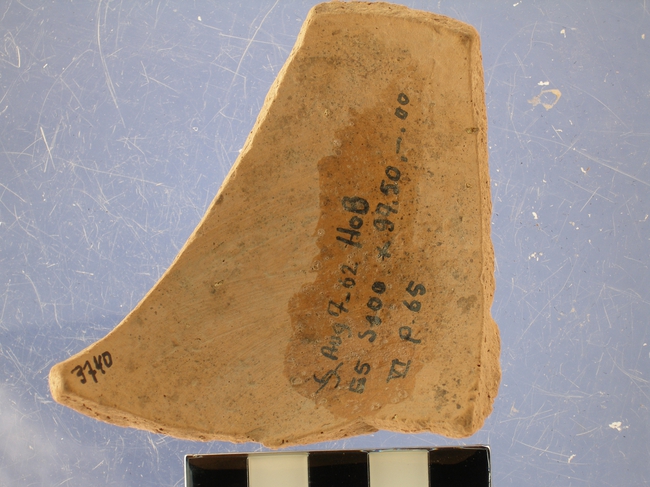 3740
Aug 7-02 HoB
E5 S600 * 97.50 -.00
VI P. 65